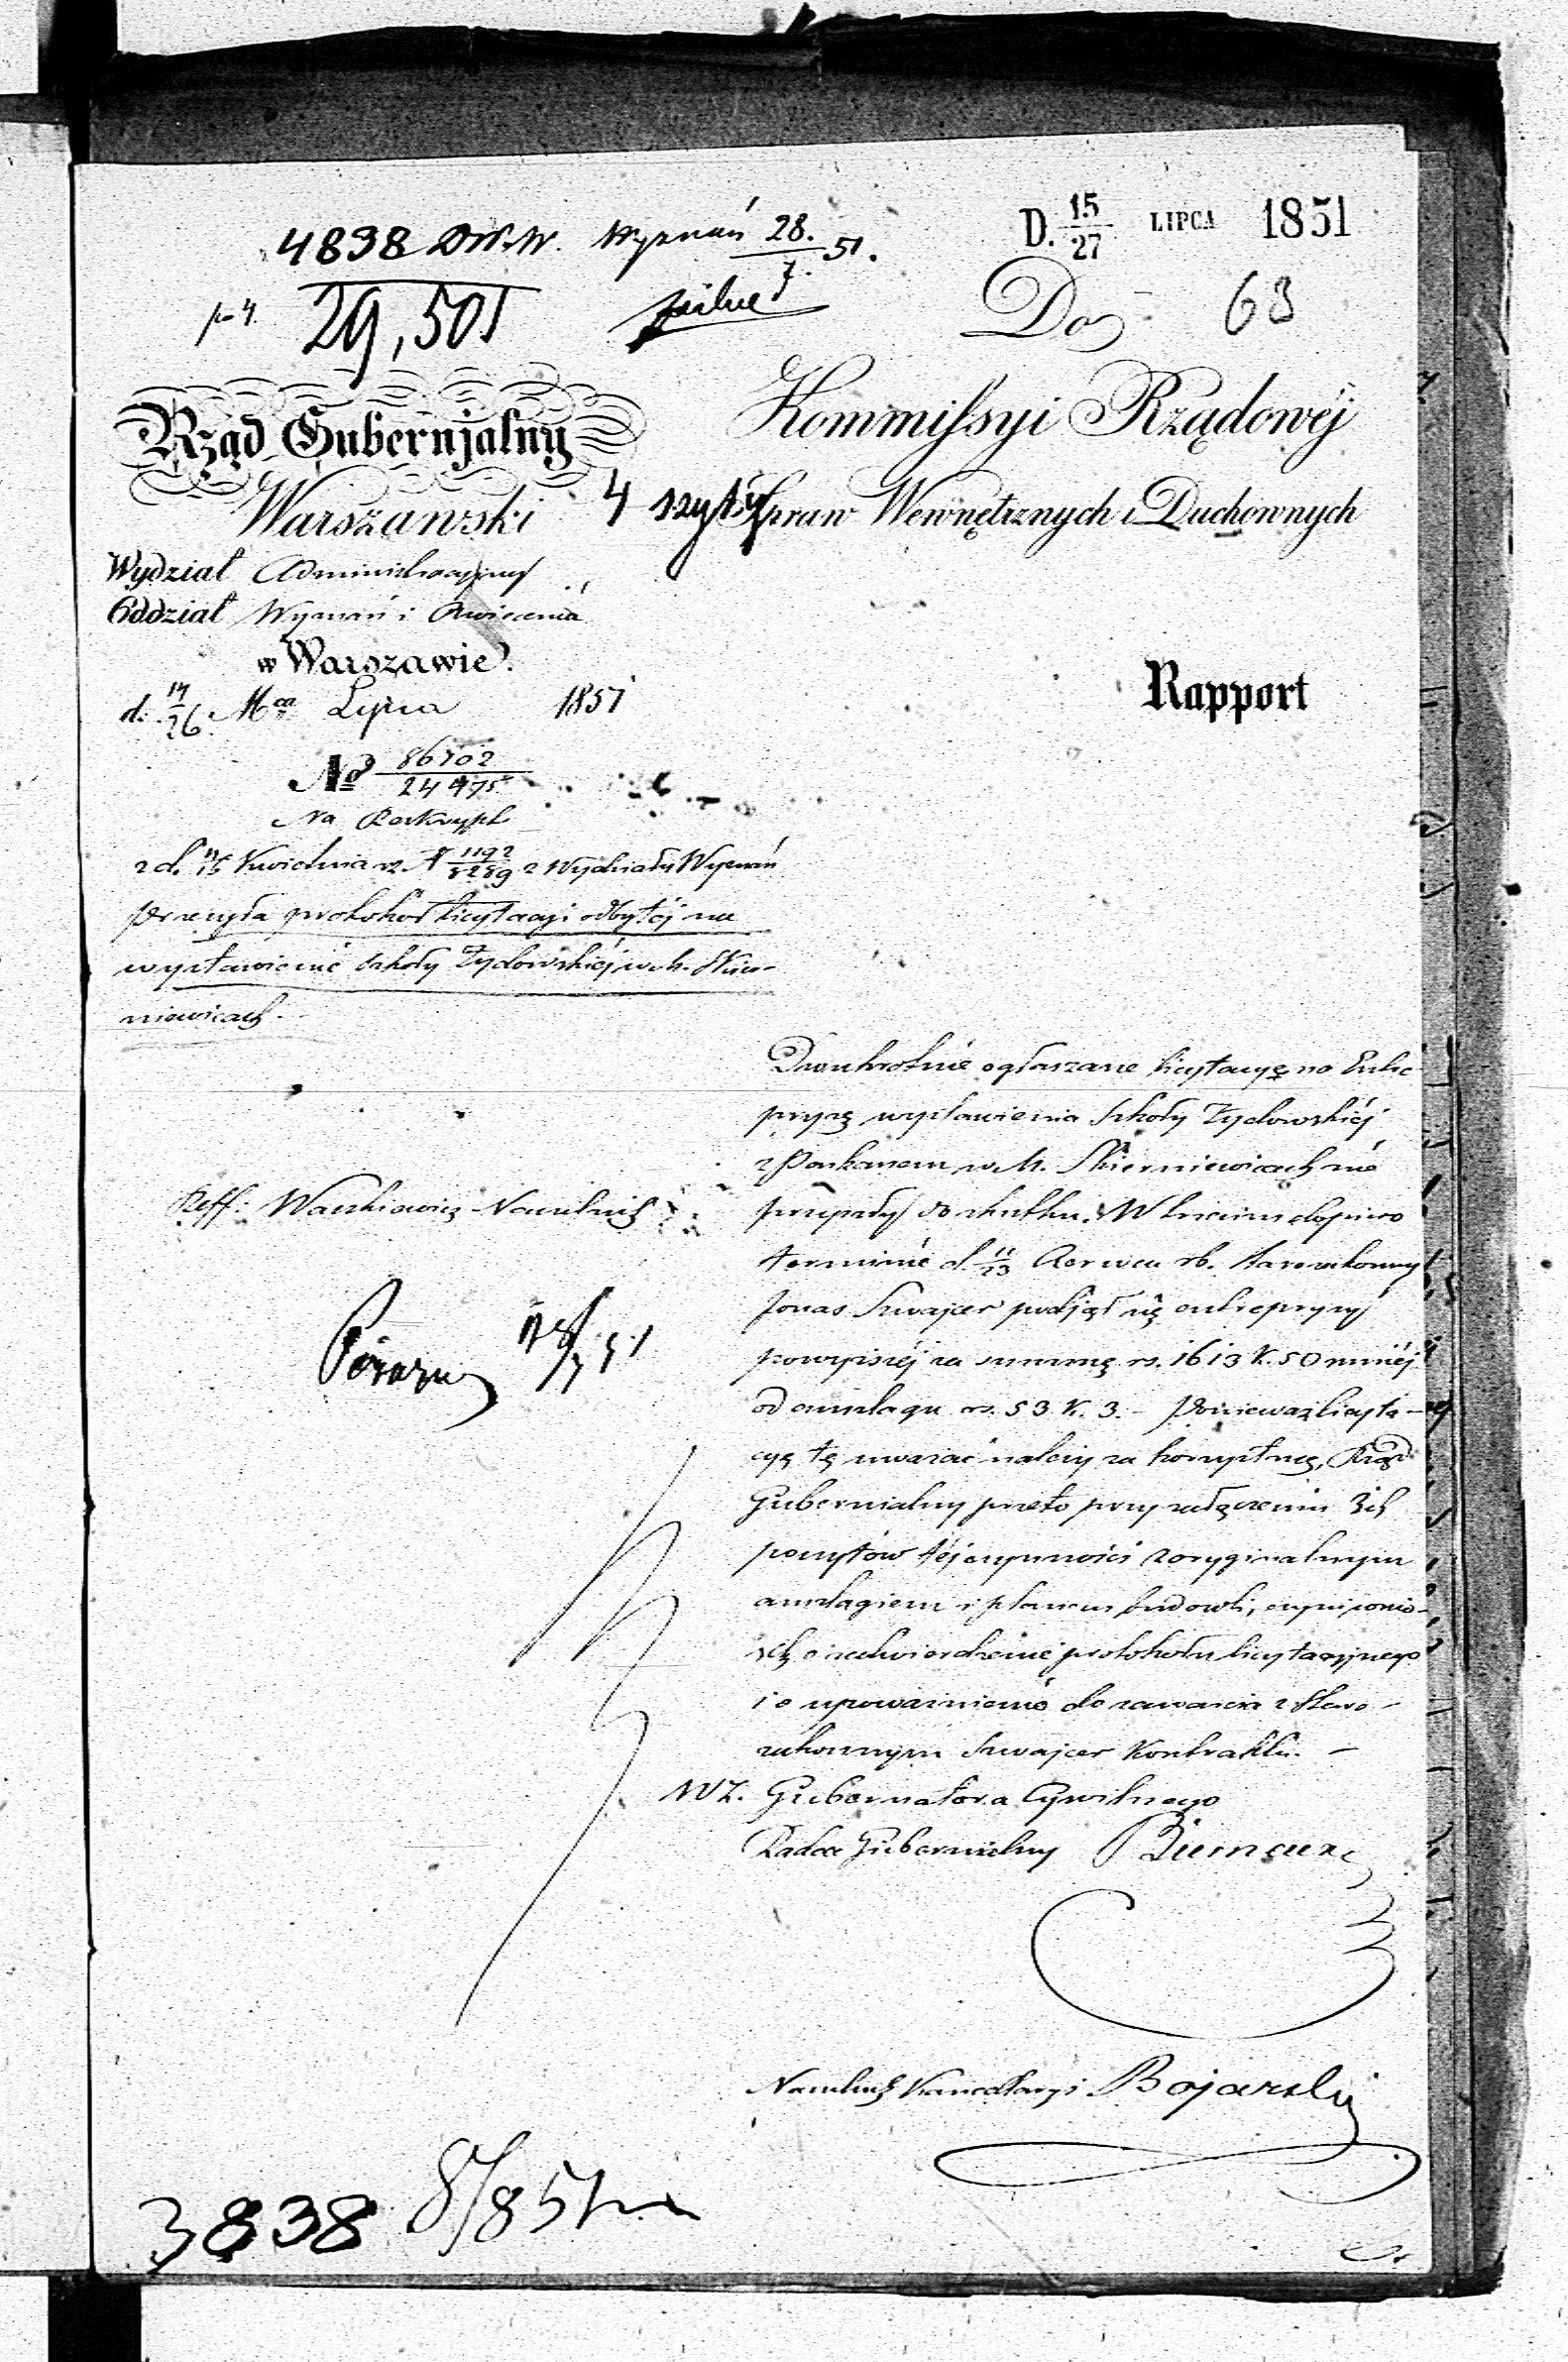 4898 D.W.W. Wyznań 28./7. 51.
D. 15/27 LIPCA 1851
29,501
pilne
Do
63
Rząd Gubernjalny
Warszawski
Kommissyi Rządowéj
4 szyty
Spraw Wewnętrznych i Duchownych
Wydział Administracyjny
Oddział Wyznań i Oświecenia
w Warszawie.
d. 14/26 Mca Lipca 1851
Rapport
No 86702/24475
Na Reskrypt
z d. /15 Kwietnia rz. N 1192/8289 z Wydziału Wyznań
Przesyła protokół licytacyi odbytéj na
wystawienie szkoły Żydowskiéj w m. Skier-
niewicach.
Dwukrotnie ogłaszane licytacye na Entre
pryzę wystawienia Szkoły Żydowskiéj
z Parkanem w M. Skierniewicach nie
przyszły do skutku. W trzecim dopiero
terminie d. 11/23 Czerwca rb. starozakonny
Jonas Szwajcer podjął się entrepryzy
powyższéj za summę rs. 1613 k. 50 mniéj
od anszlagu rs. 53 k. 3. – Ponieważ licyta-
cyę tę uważać należy za korzystną, Rząd
Gubernialny przeto przy załączeniu 3ch
poszytów téj czynności z oryginalnym
anszlagiem i planem budowli, czyni wnio-
sek o zatwierdzenie protokołu licytacyjnego
i o upoważnienie do zawarcia z Staro-
zakonnym Szwajcer Kontraktu. –
Reff: Waszkiewicz Naczelnik
WZ. Gubernatora Cywilnego
Radca Gubernialny
Naczelnik Kancellaryi Bojarski
3838 8/8 51